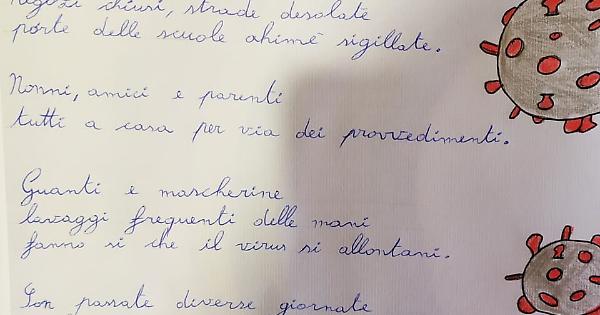 Negozi chiusi, strade desolate
porte delle scuole ahimè sigillate.
Nonni, amici e parenti
tutti a casa per via dei provvedimenti.
Guanti e mascherine
lavaggi frequenti delle mani
fanno sì che il virus si allontani.
Son passate diverse giornate